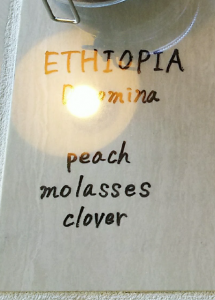 ETHIOPIA
peach
molasses
clover